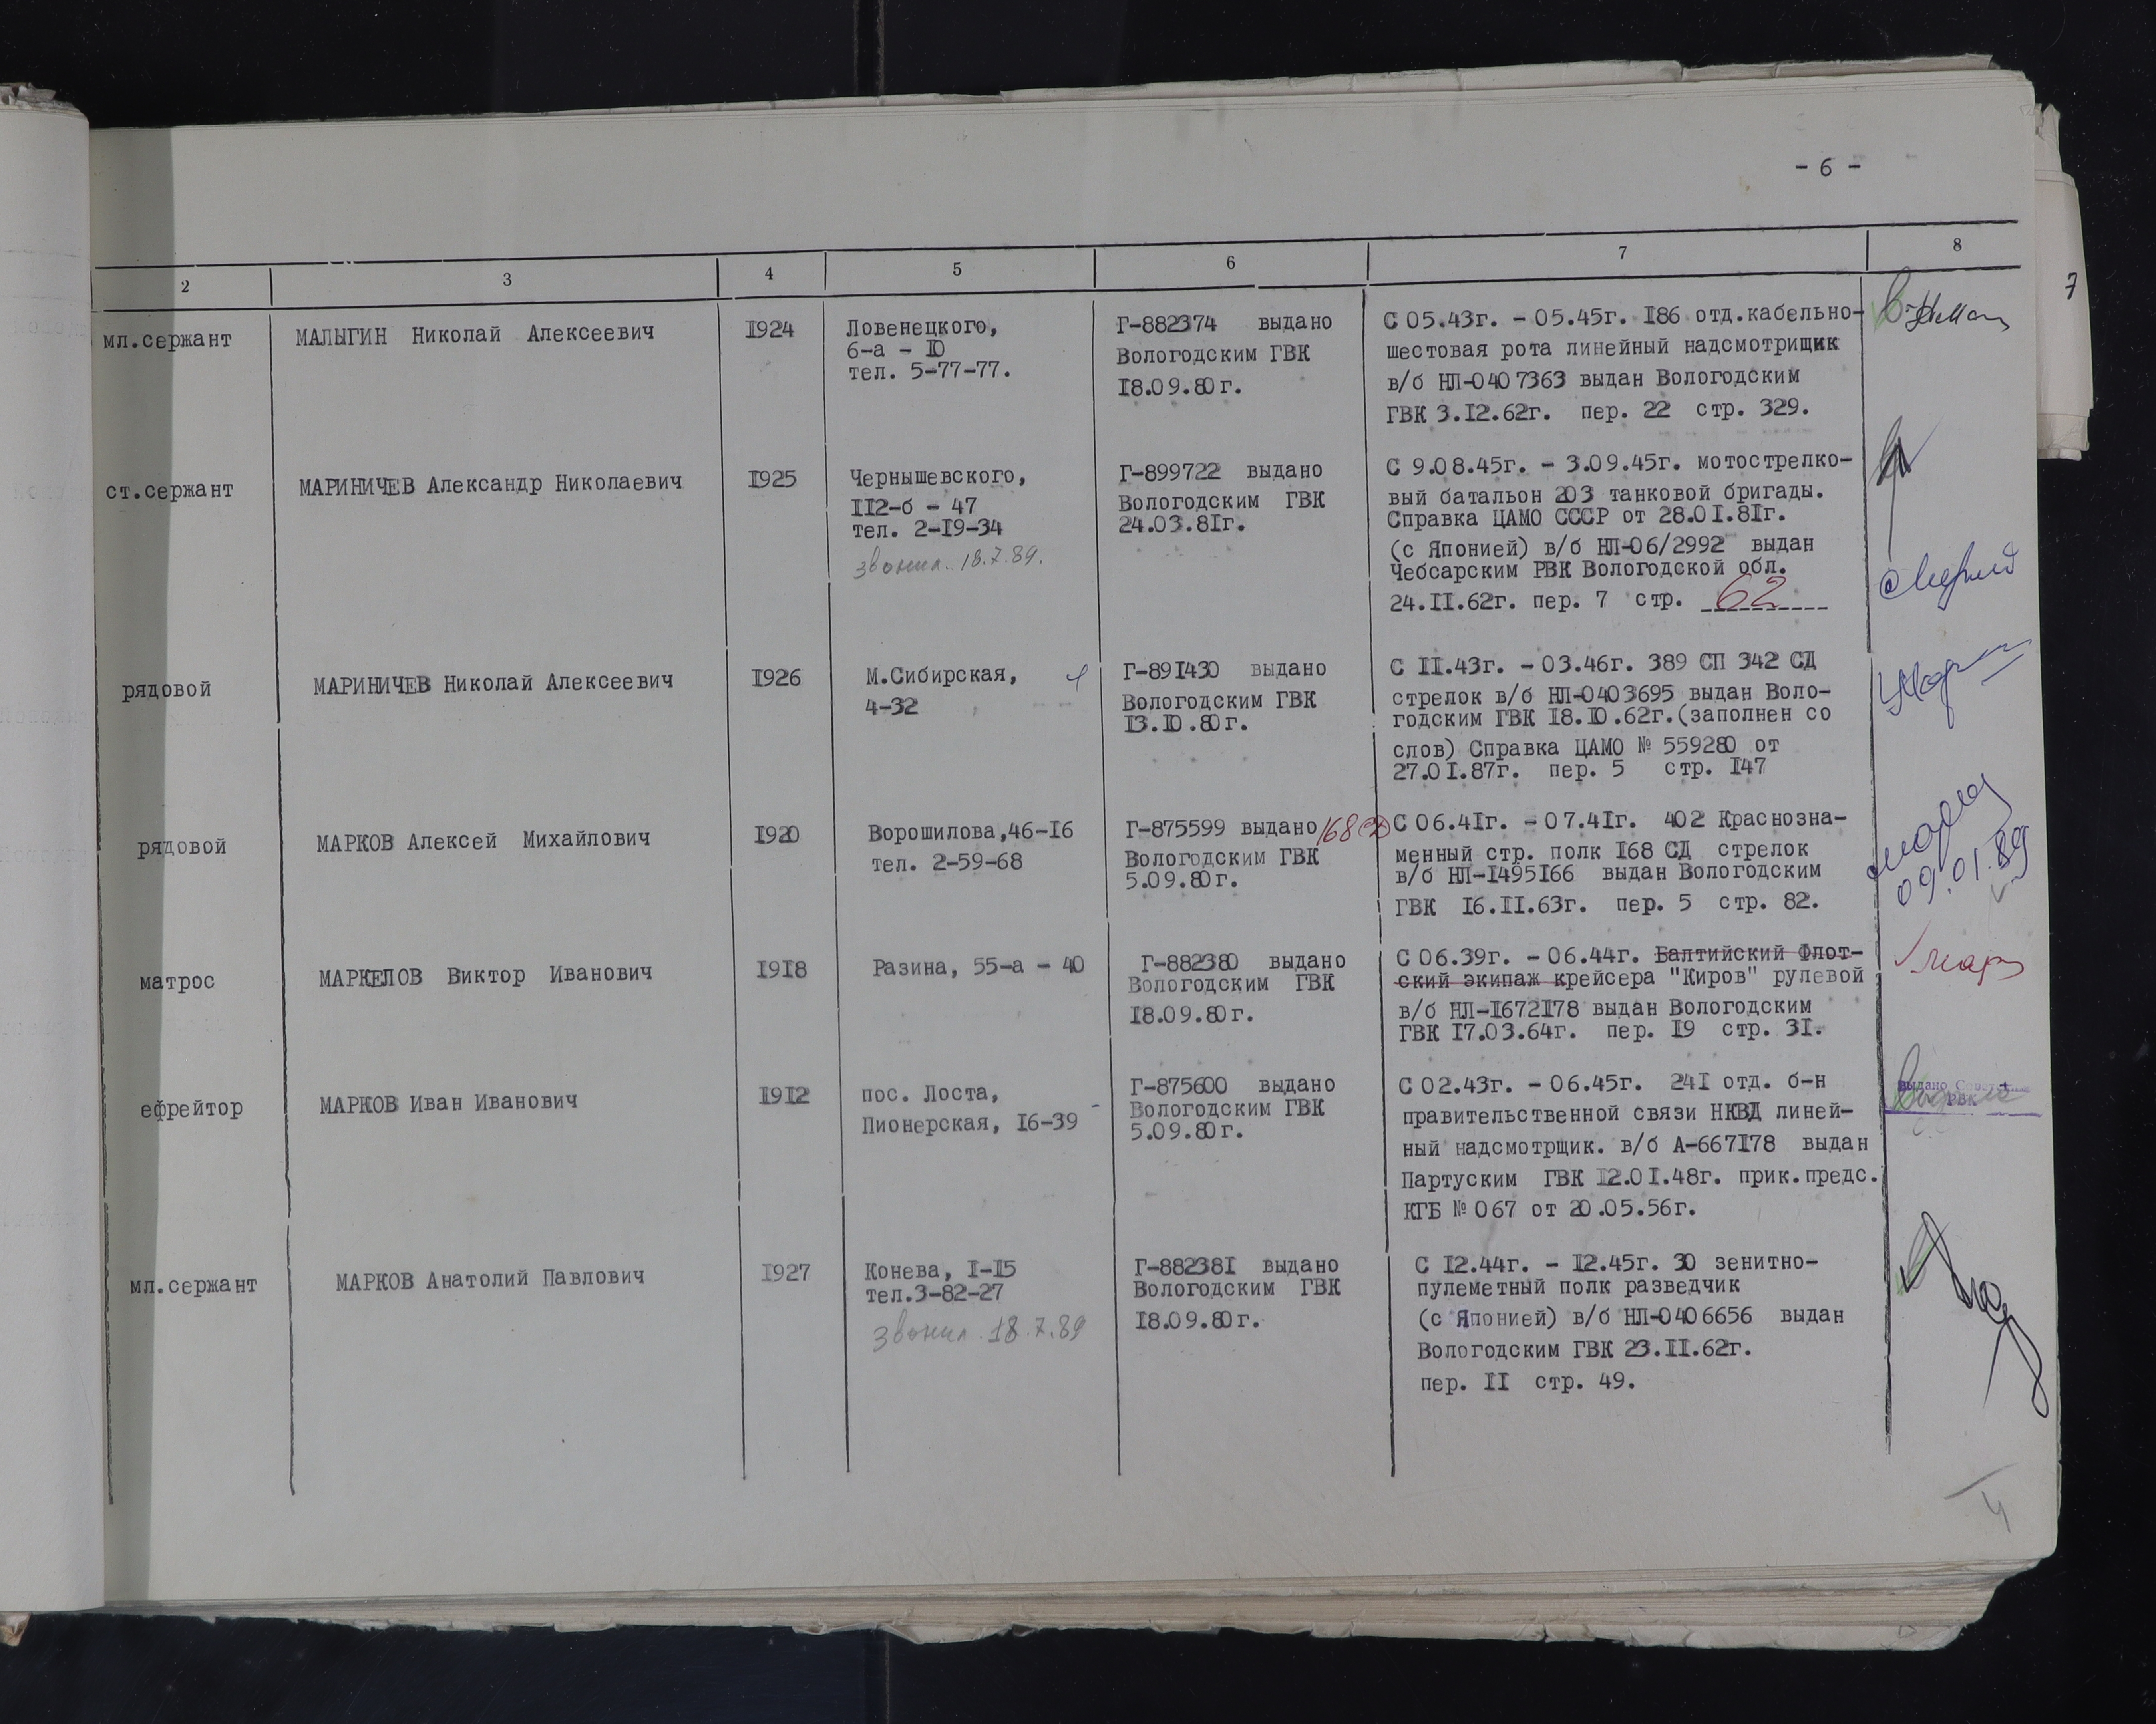 - 6 -
2 3 4 5 6 7 8
7
мл.сержант
МАЛЫГИН Николай Алексеевич
1924
Ловенецкого,
6-а - 10
тел. 5-77-77.
Г-882374 выдано
Вологодским ГВК
18.09.80г.
С 05.43г. - 05.45г. 186 отд.кабельно-
шестовая рота линейный надсмотрищик
в/б НЛ-0407363 выдан Вологодским
ГВК 3.12.62г. пер. 22 стр. 329.
ст.сержант
МАРИНИЧЕВ Александр Николаевич
1925
Чернышевского,
112-б - 47
тел. 2-19-34
звонил. 18.7.89.
Г-899722 выдано
Вологодским ГВК
24.03.81г.
С 9.08.45г. - 3.09.45г. мотострелко-
вый батальон 203 танковой бригады.
Справка ЦАМО СССР от 28.01.81г.
(с Японией) в/б НЛ-06/2992 выдан
Чебсарским РВК Вологодской обл.
24.11.62г. пер. 7 стр. 62
рядовой
МАРИНИЧЕВ Николай Алексеевич
1926
М.Сибирская,
4-32
Г-891430 выдано
Вологодским ГВК
13.10.80г.
С 11.43г. - 03.46г. 389 СП 342 СД
стрелок в/б НЛ-0403695 выдан Воло-
годским ГВК 18.10.62г.(заполнен со
слов) Справка ЦАМО № 559280 от
27.01.87г. пер. 5 стр. 147
рядовой
МАРКОВ Алексей Михайлович
1920
Ворошилова,46-16
тел. 2-59-68
Г-875599 выдано 168 СД
Вологодским ГВК
5.09.80г.
С 06.41г. - 07.41г. 402 Краснозна-
менный стр. полк 168 СД стрелок
в/б НЛ-1495166 выдан Вологодским
ГВК 16.11.63г. пер. 5 стр. 82.
09.01.89
матрос
МАРКЕЛОВ Виктор Иванович
1918
Разина, 55-а - 40
Г-882380 выдано
Вологодским ГВК
18.09.80г.
С 06.39г. - 06.44г. Балтийский Флот-
ский экипаж крейсера "Киров" рулевой
в/б НЛ-1672178 выдан Вологодским
ГВК 17.03.64г. пер. 19 стр. 31.
Мар
ефрейтор
МАРКОВ Иван Иванович
1912
пос. Лоста,
Пионерская, 16-39
Г-875600 выдано
Вологодским ГВК
5.09.80г.
С 02.43г. - 06.45г. 241 отд. б-н
правительственной связи НКВД линей-
ный надсмотрщик. в/б А-667178 выдан
Партуским ГВК 12.01.48г. прик.предс.
КГБ № 067 от 20.05.56г.
выдано
РВК
мл.сержант
МАРКОВ Анатолий Павлович
1927
Конева, 1-15
тел.3-82-27
звонил 18.7.89
Г-882381 выдано
Вологодским ГВК
18.09.80г.
С 12.44г. - 12.45г. 30 зенитно-
пулеметный полк разведчик
(с Японией) в/б НЛ-0406656 выдан
Вологодским ГВК 23.11.62г.
пер. 11 стр. 49.
4